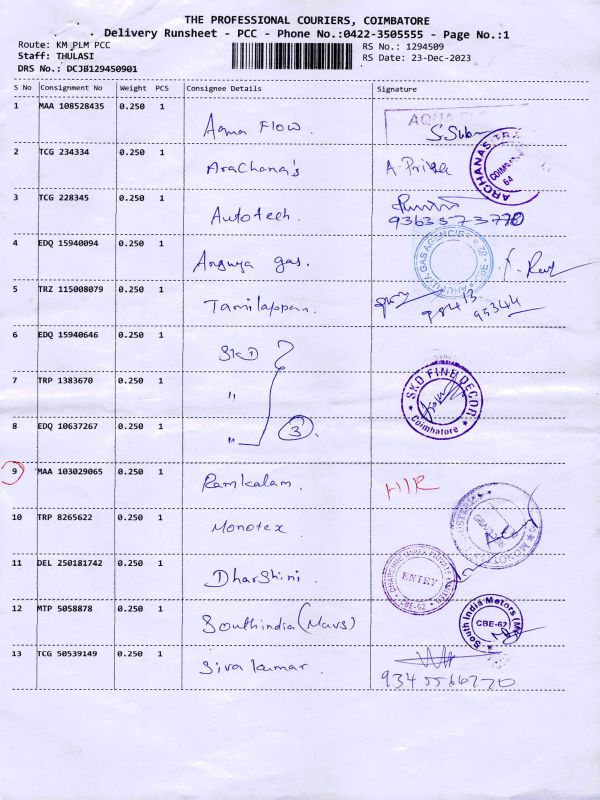 THE PROFESSIONAL COURIERS, COIMBATORE
Delivery Runsheet - PCC - Phone No.:0422-3505555 - Page No.:1
Route: KM PLM PCC
RS No.: 1294509
Staff: THULASI
RS Date: 23-Dec-2023
DRS No.: DCJB129450901
S No Consignment No Weight PCS Consignee Details Signature
1 MAA 108528435 0.250 1 Aqua Flow. S.Sub
2 TCG 234334 0.250 1 Arachana's A. Priya
3 TCG 228345 0.250 1 Autotech.
4 EDQ 15940094 0.250 1 gas.
ANUYA GAS AGENCIES
5 TRZ 115008079 0.250 1 Tamilappan. 98413 95344
6 EDQ 15940646 0.250 1 SKD
7 TRP 1383670 0.250 1 "
SKD FINE DECOR
Coimbatore
8 EDQ 10637267 0.250 1 " 3
9 MAA 103029065 0.250 1 Ramkalam.
10 TRP 8265622 0.250 1 Monotex
11 DEL 250181742 0.250 1 Dharshini
ENTRY
CBE-62
12 MTP 5058878 0.250 1 Southindia
South India Motors
CBE-62
13 TCG 50539149 0.250 1 Siva kumar